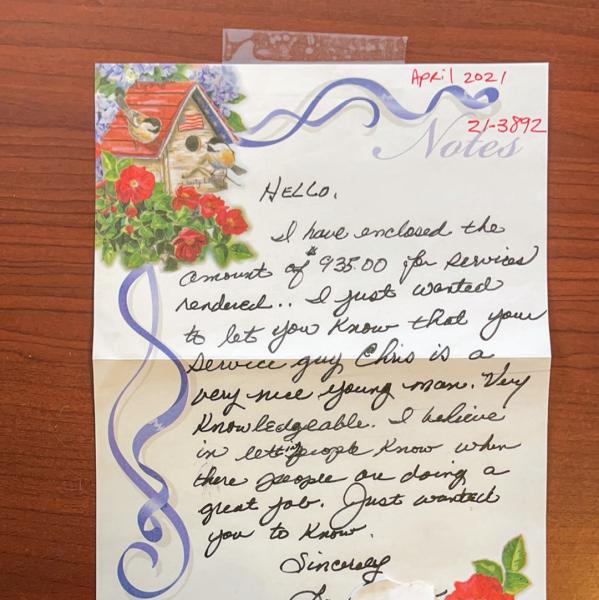 April 2021
21-3892
Notes
HELLO,
I have enclosed the
amount of $935.00 for services
rendered.. I just wanted
to let you know that your
service guy Chris is a
very nice young man. Very
Knowledgeable. I believe
in letting people know when
there people are doing a
great job. Just wanted
you to know.
Sincerely